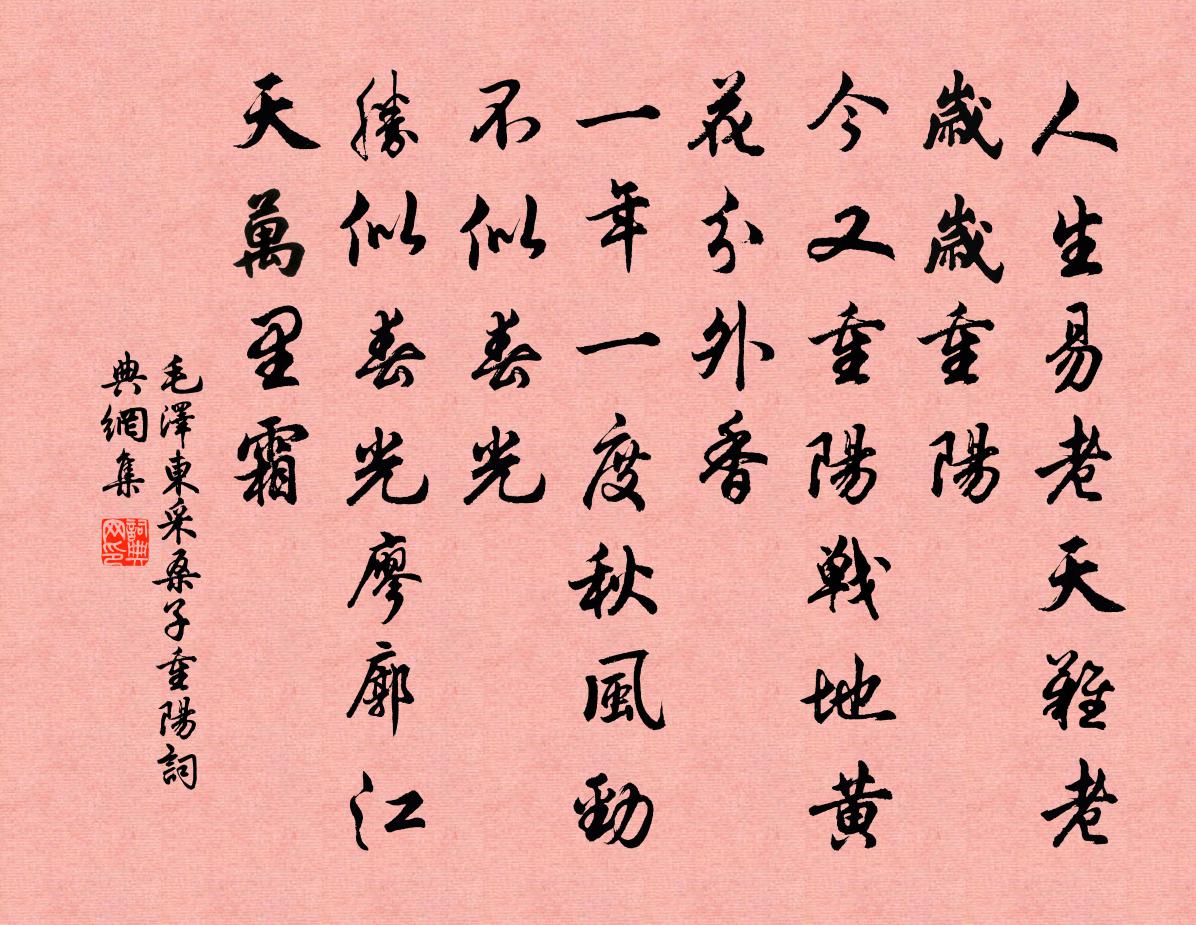 人生易老天難老
歲歲重陽
今又重陽戰地黃
花分外香
一年一度秋風勁
不似春光
勝似春光廖廓江
天萬里霜
毛澤東采桑子重陽詞
典網集
詞典
网印